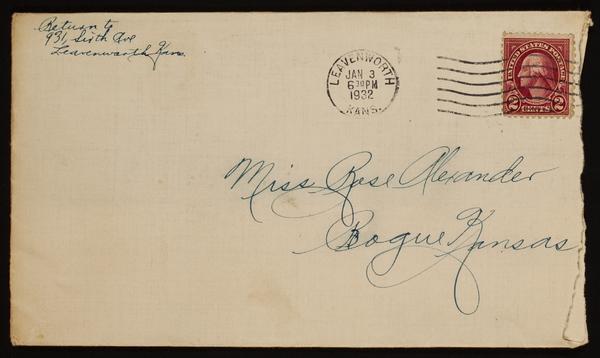 Return to
931, Sixth Ave
Leavenworth Kans.
LEAVENWORTH
JAN 3
6 30 PM
1932
KANS.
UNITED STATES POSTAGE
2 CENTS 2
Miss Rose Alexander
Bogue Kansas